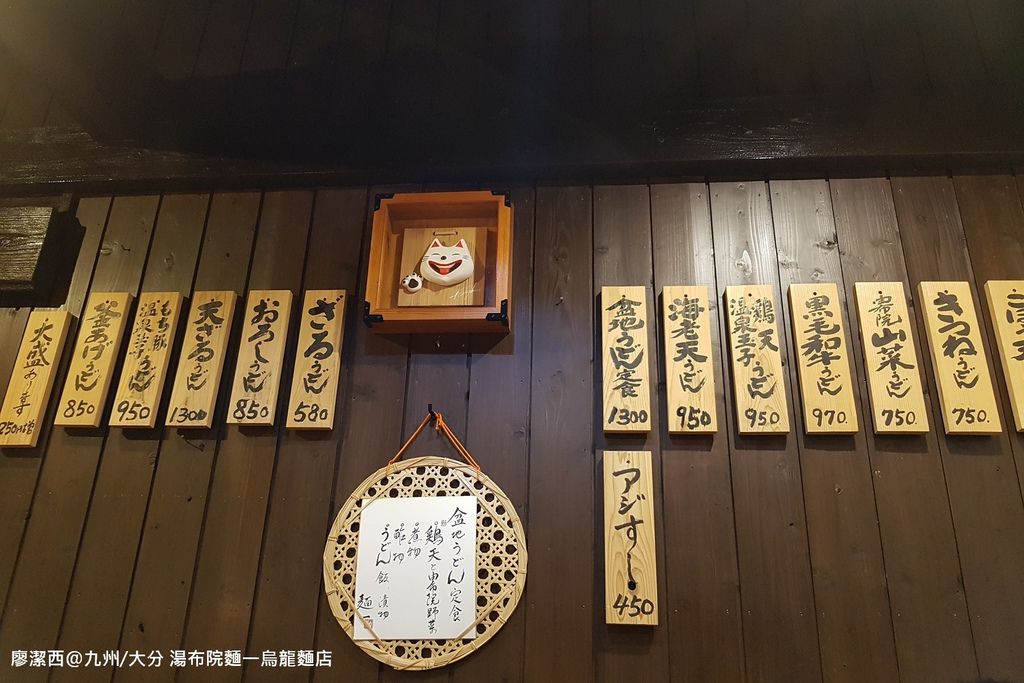 きつねうどん
750.
由布院山菜うどん
750.
黒毛和牛うどん
970.
鶏天
温泉玉子うどん
950
海老天うどん
950
盆地うどん定食
1300
アジすし
450
ざるうどん
580
おろしうどん
850
天ざるうどん
1300
もち豚
温泉玉子うどん
950
釜あげうどん
850
大盛あります
250円増
盆地うどん定食
鶏天と由布院野菜
煮物
酢物
うどん 飯 漬物
麺一
廖潔西@九州/大分 湯布院麵一烏龍麵店